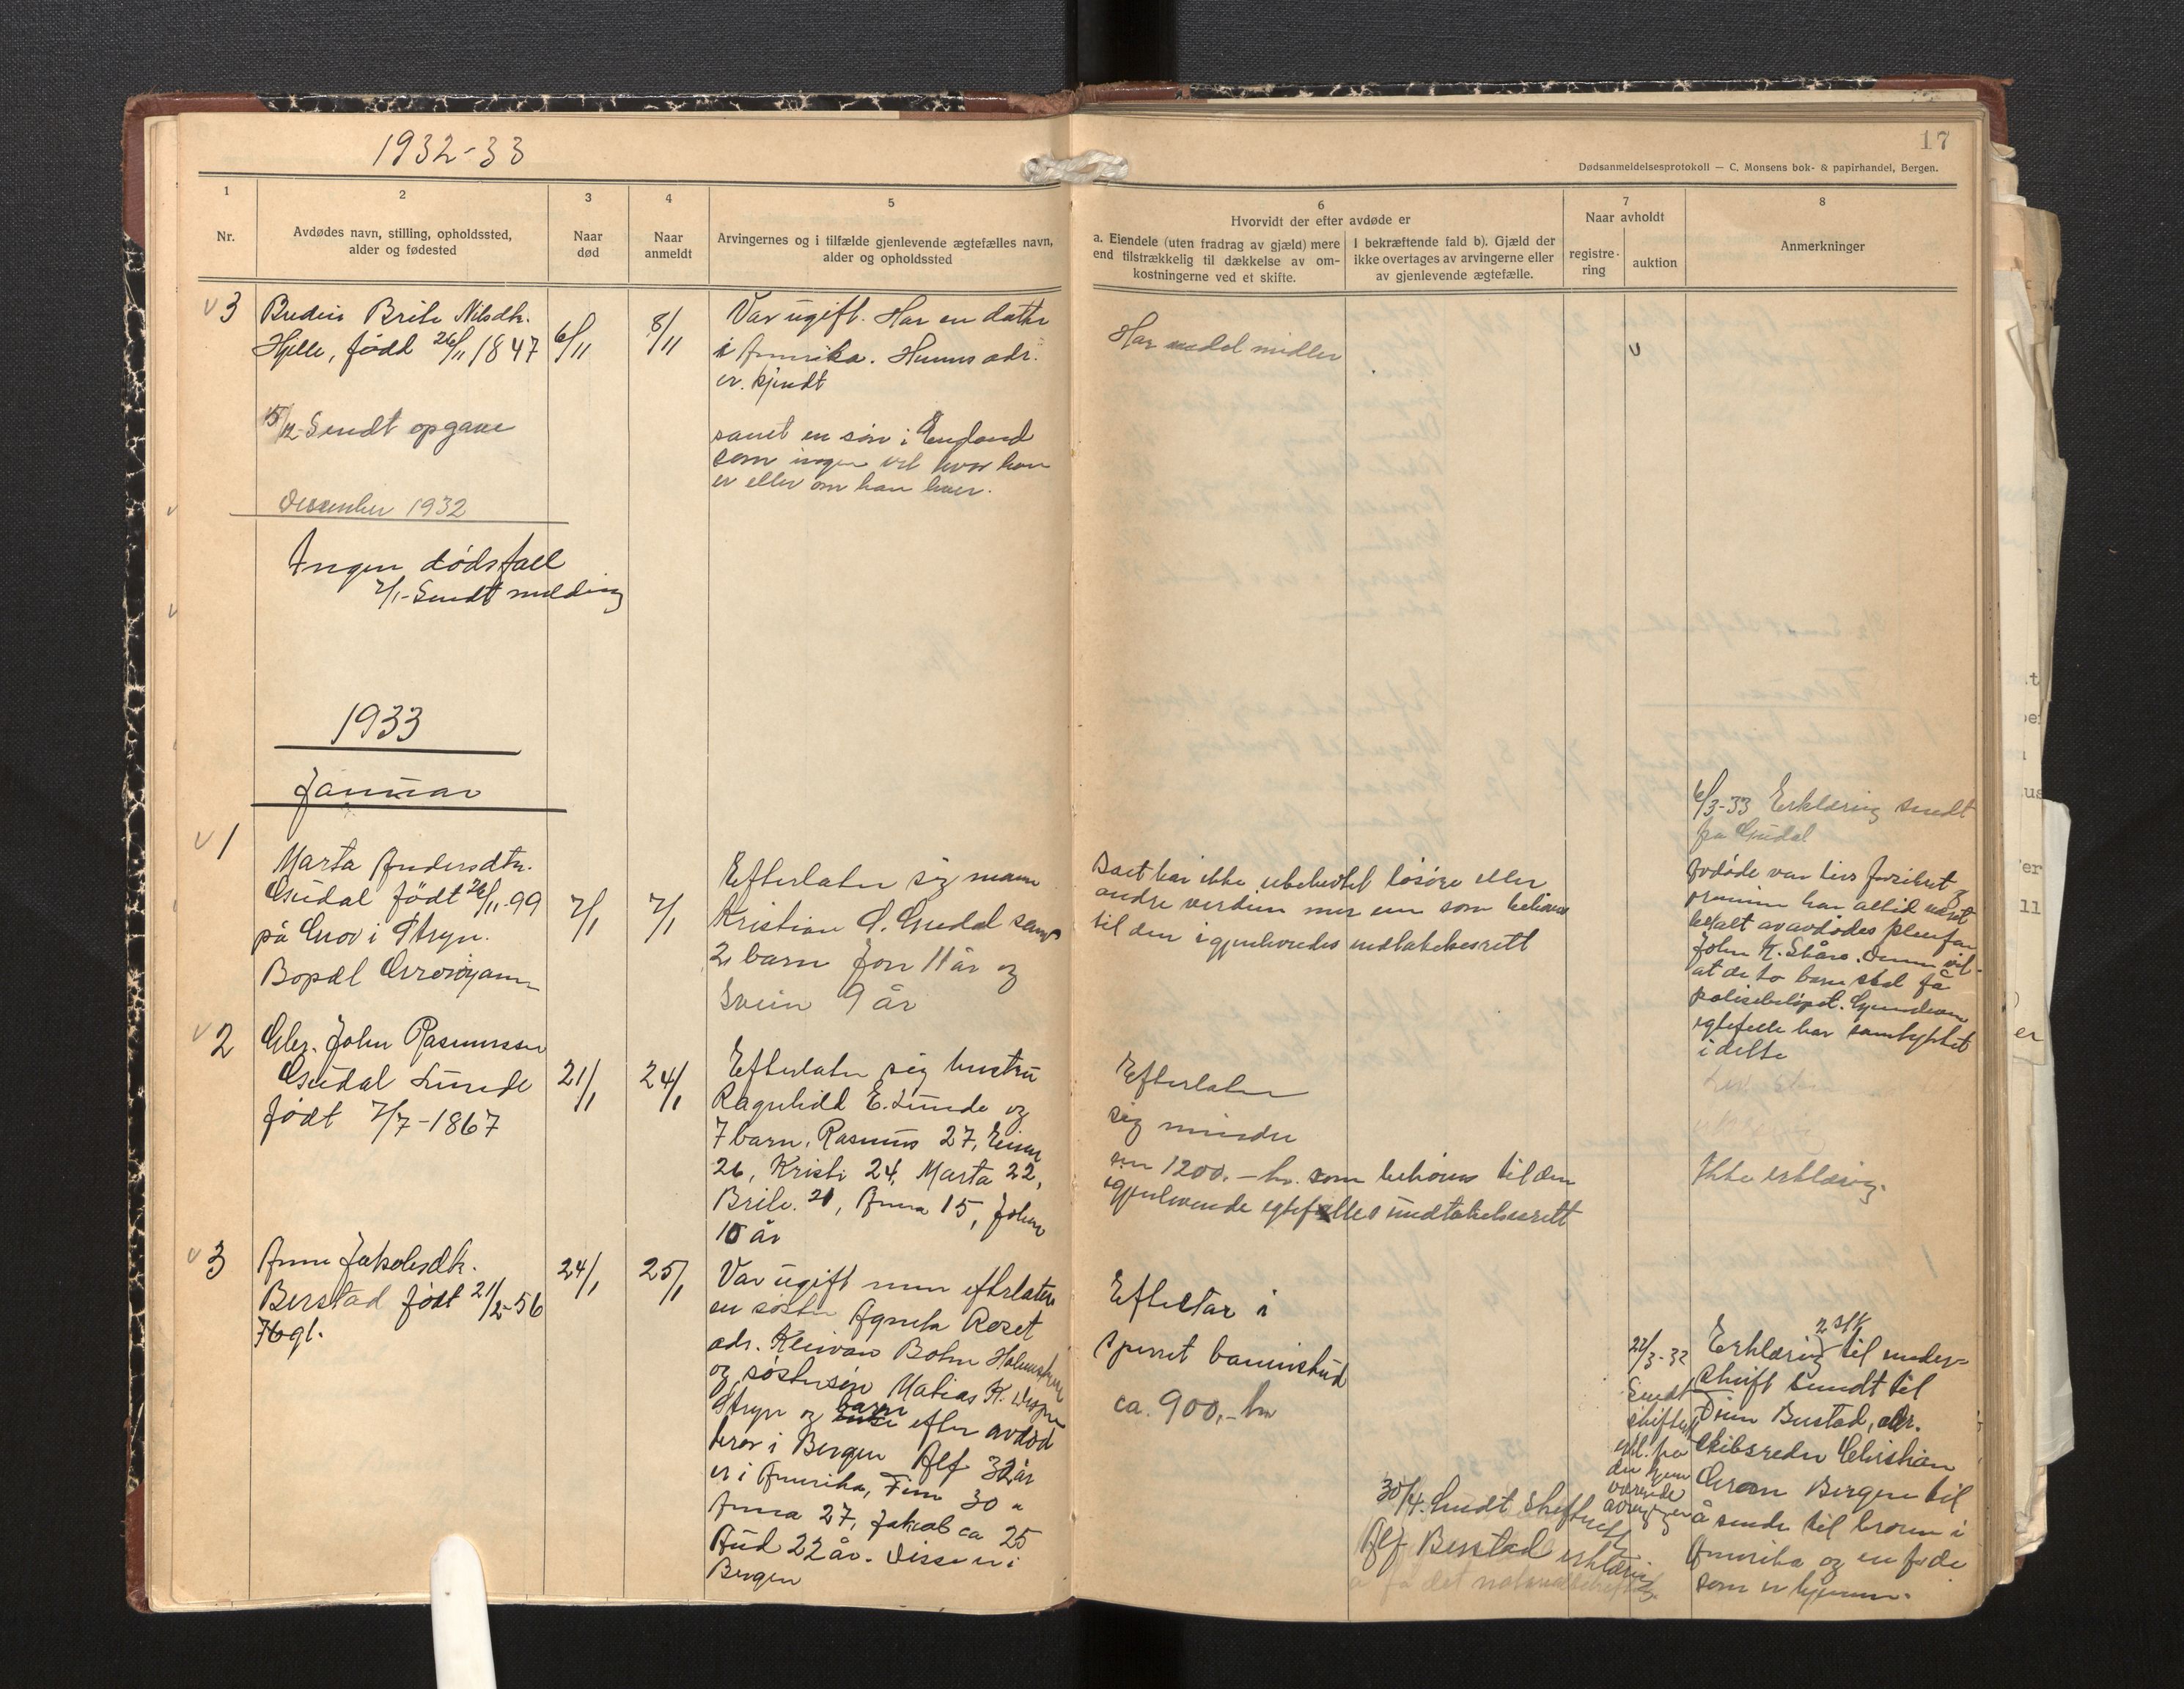 1932-33
17
Dødsanmeldelsesprotokoll — C. Monsens bok- & papirhandel, Bergen.
1
2
3
4
5
6
7
8
Nr.
Avdødes navn, stilling, opholdssted,
alder og fødested
Naar
død
Naar
anmeldt
Arvingernes og i tilfælde gjenlevende ægtefælles navn,
alder og opholdssted
Hvorvidt der efter avdøde er
a. Eiendele (uten fradrag av gjæld) mere
end tilstrækkelig til dækkelse av om-
kostningerne ved et skifte.
I bekræftende fald b). Gjæld der
ikke overtages av arvingerne eller
av gjenlevende ægtefælle.
Naar avholdt
registre-
ring
auktion
Anmerkninger
3
Brite Nilsdtr.
Hjelle, født 26/11 1847
6/11
8/11
Var ugift. Har en datter
i Amerika. Hennes adr.
er kjendt
samt en søn i England
som ingen vet hvor han
er eller om han lever.
Har midler
15/12 Sendt opgave
December 1932
Ingen dødsfall
2/1- Sendt melding
1933
Januar
1
Marta Andersdtr.
Gudal født 26/11-99
på Grov i Stryn.
Bopæl
7/1
7/1
Efterlater sig mann
Kristian Gudal samt
2 barn Jon 11 år og
Svein 9 år
Boet har ikke ubeheftet løsøre eller
andre verdier mer enn som behøves
til den igjenlevendes undtakelsesrett
6/3-33 Erklæring sendt
fra Gudal
Avdøde var livsforsikret og
premien har altid været
betalt av avdødes pleiefar
John K. Skåre. Denne vil
at de to barn skal få
polisebeløpet. Gjenlevende
egtefelle har samtykket
i dette
2
Gbr. John Rasmussen
Gudal Lunde
født 7/7-1867
21/1
24/1
Efterlater sig hustru
Ragnhild E. Lunde og
7 barn, Rasmus 27, Einar
26, Kristi 24, Marta 22,
Brite 21, Anna 15, Johan
10 år
Efterlater
sig mindre
enn 1200,- kr. som behøves til den
igjenlevende egtefelles undtakelsesrett
Ikke erklæring.
3
Anne Jakobsdtr.
Berstad født 21/2-56
76 gl.
24/1
25/1
Var ugift men efterlater
en søster Agnete Roset
adr. Bohn
og søstersøn Matias K.
Stryn og barn efter avdød
bror i Bergen Alf 32 år
er i Amerika, Finn 30 "
Anna 27, Jakob ca 25
Aud 22 år. Disse er i
Bergen
Efterlar i
Sparebank
ca. 900,- kr
30/4. Sendt skifteret
Alf Berstad erklæring
22/3-33
Sendt
skifteret
erkl. fra
de hjemme
værende
arvinger
Erklæring 2 stk til under-
skrift sendt til
Finn Berstad, adr.
skibsreder Christian
Bergen til
å sende til broren i
Amerika og en for de
som er hjemme.